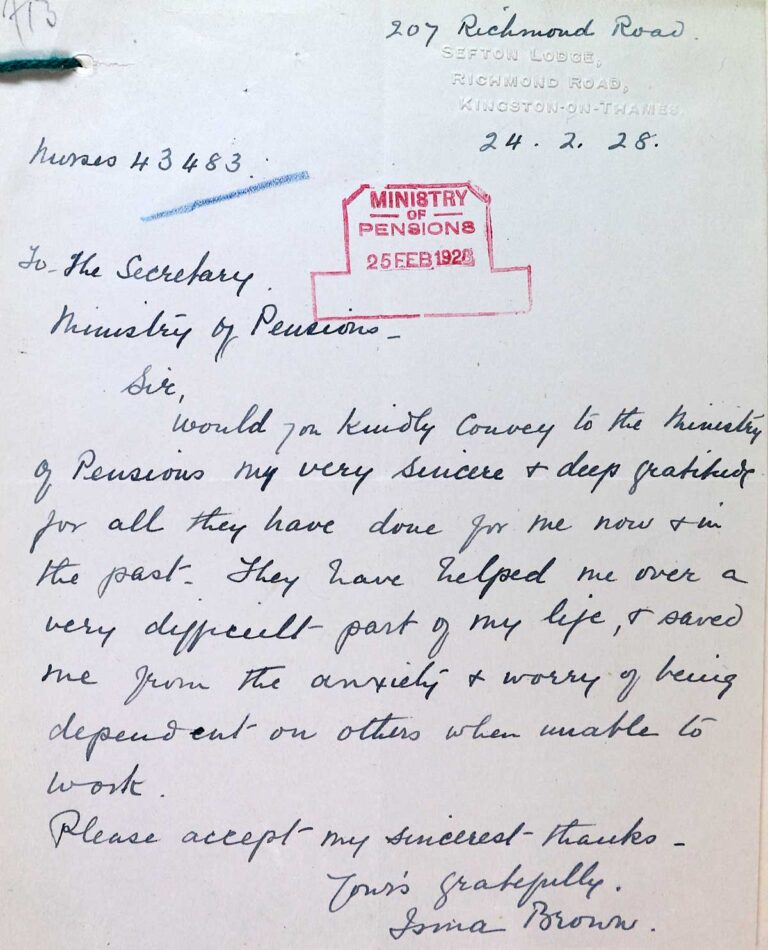 713
207 Richmond Road.
SEFTON LODGE,
RICHMOND ROAD,
KINGSTON-ON-THAMES
24. 2. 28.
Nurses 43483.
MINISTRY
OF
PENSIONS
25 FEB 1928
To - The Secretary.
Ministry of Pensions -
Sir,
Would you kindly Convey to the Ministry
of Pensions my very sincere & deep gratitude
for all they have done for me now & in
the past - They have helped me over a
very difficult part of my life, & saved
me from the anxiety & worry of being
dependent on others when unable to
work.
Please accept my sincerest thanks -
Your's gratefully.
Isma Brown.